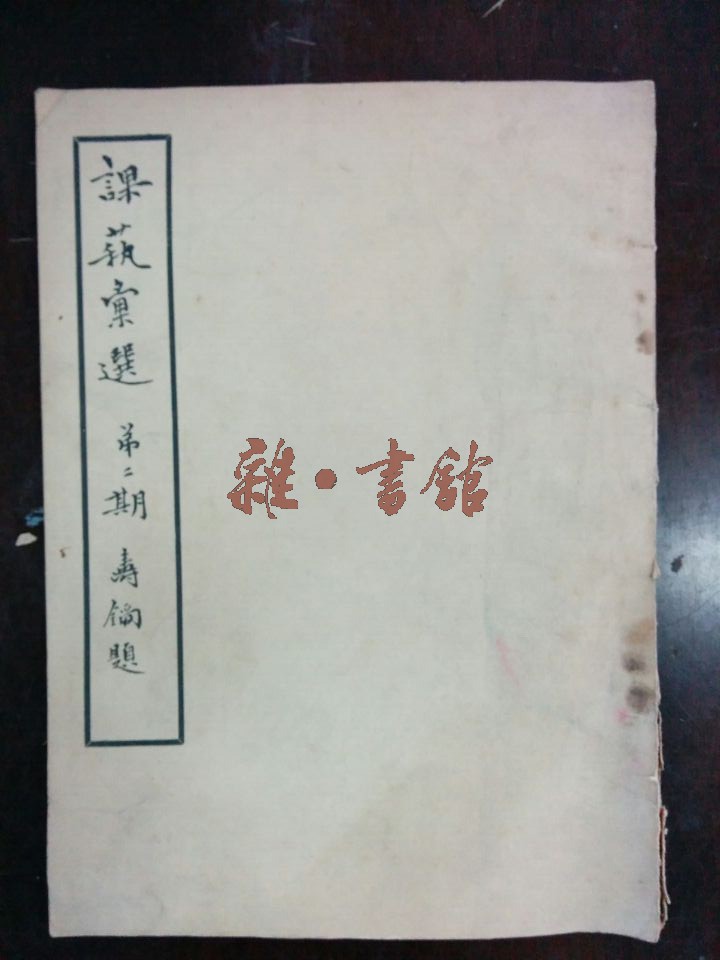 課蓺彙選 第二期 壽鏞題
雜·書館